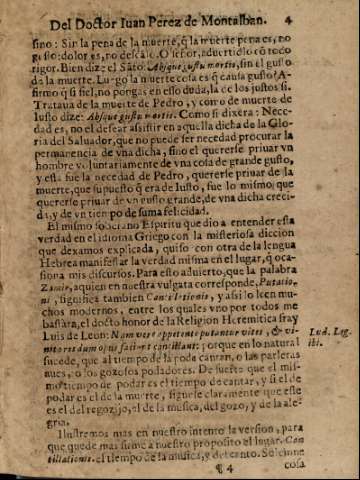 Del Doctor Iuan Perez de Montalban. 4
sino: Sin la pena de la muerte, q̃ la muerte pena es, no
gusto: dolor es, no descãso. O señor, aduertidlo cõ todo
rigor. Bien dize el Sãto: Absque gustu mortis, sin el gusto
da la muerte. Luego la muerte cosa es q̃ causa gusto? A-
firmo q̃ si fiel, no pongas en esso duda, la de los justos si.
Trataua de la muerte de Pedro, y como de muerte de
Iusto dize: Absque gustu mortis. Como si dixera: Nece-
dad es, no el desear assistir en aquella dicha de la Glo-
ria del Saluador, que no puede ser necedad procurar la
permanencia de vna dicha, sino el quererse priuar vn
hombre voluntariamente de vna cosa de grande gusto,
y esta fue la necedad de Pedro, quererse priuar de la
muerte, que supuesto q̃ era de Iusto, fue lo mismo que
quererse priuar de vn gusto grande, de vna dicha creci-
da, y de vn tiempo de suma felicidad.
El mismo soberano Espiritu que dio a entender esta
verdad en el idioma Griego con la misteriosa diccion
que dexamos explicada, quiso con otra de la lengua
Hebrea manifestar la verdad misma en el lugar, q̃ oca-
siona mis discursos. Para esto aduierto, que la palabra
Zamir, a quien en nuestra vulgata corresponde, Putatio-
ni, significa tambien Cantilationis, y assi lo leen mu-
chos modernos, entre los quales vno por todos me
bastàra, el docto honor de la Religion Heremitica fray
Luis de Leon: Nam vere appetente putantur vites, & vi-
nitores dum opus faciunt cantillant; porque en lo natural
sucede, que al tiempo de la poda cantan, o las parleras
aues, o los gozosos podadores. De suerte que el mis-
mo tiempo de podar es el tiempo de cantar, y si el de
podar es el de la muerte, siguese claramente que este
es el del regozijo, el de la musica, del gozo, y de la ale-
gria.
Ilustremos mas en nuestro intento la version, para
que quede mas firme a nuestro proposito el lugar. Can
tillationis, el tiempo de la musica, y de canto.
¶ 4 cosa
Lud. Leg.
ibi.